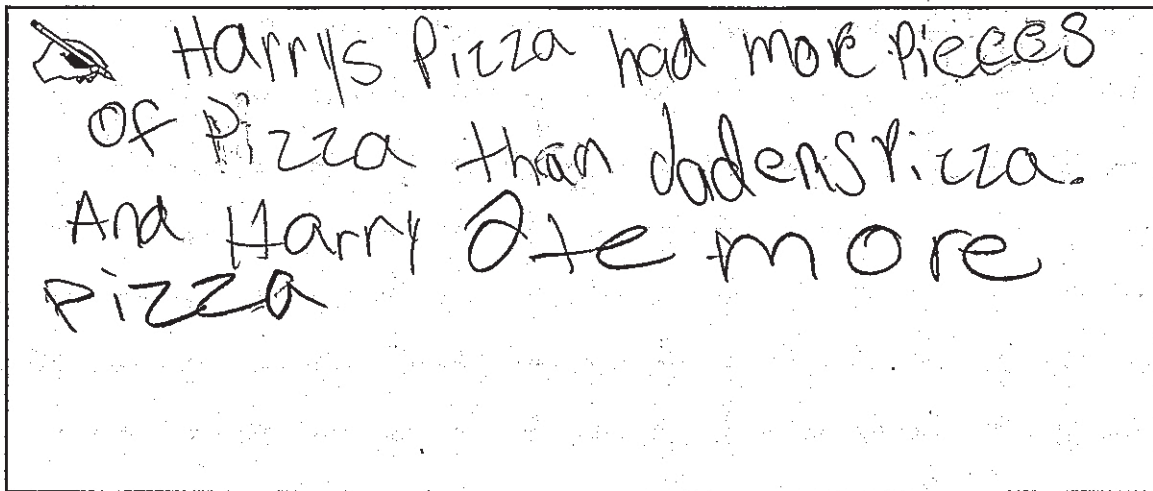 Harrys Pizza had more Pieces
Of Pizza than dadens Pizza.
And Harry Ate more
pizza